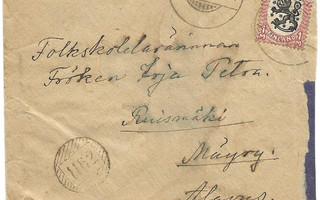 Folkskolelärarinnan
Fröken Irja Petra.
Ruismäki
Mäyry.
Alavus.
1162